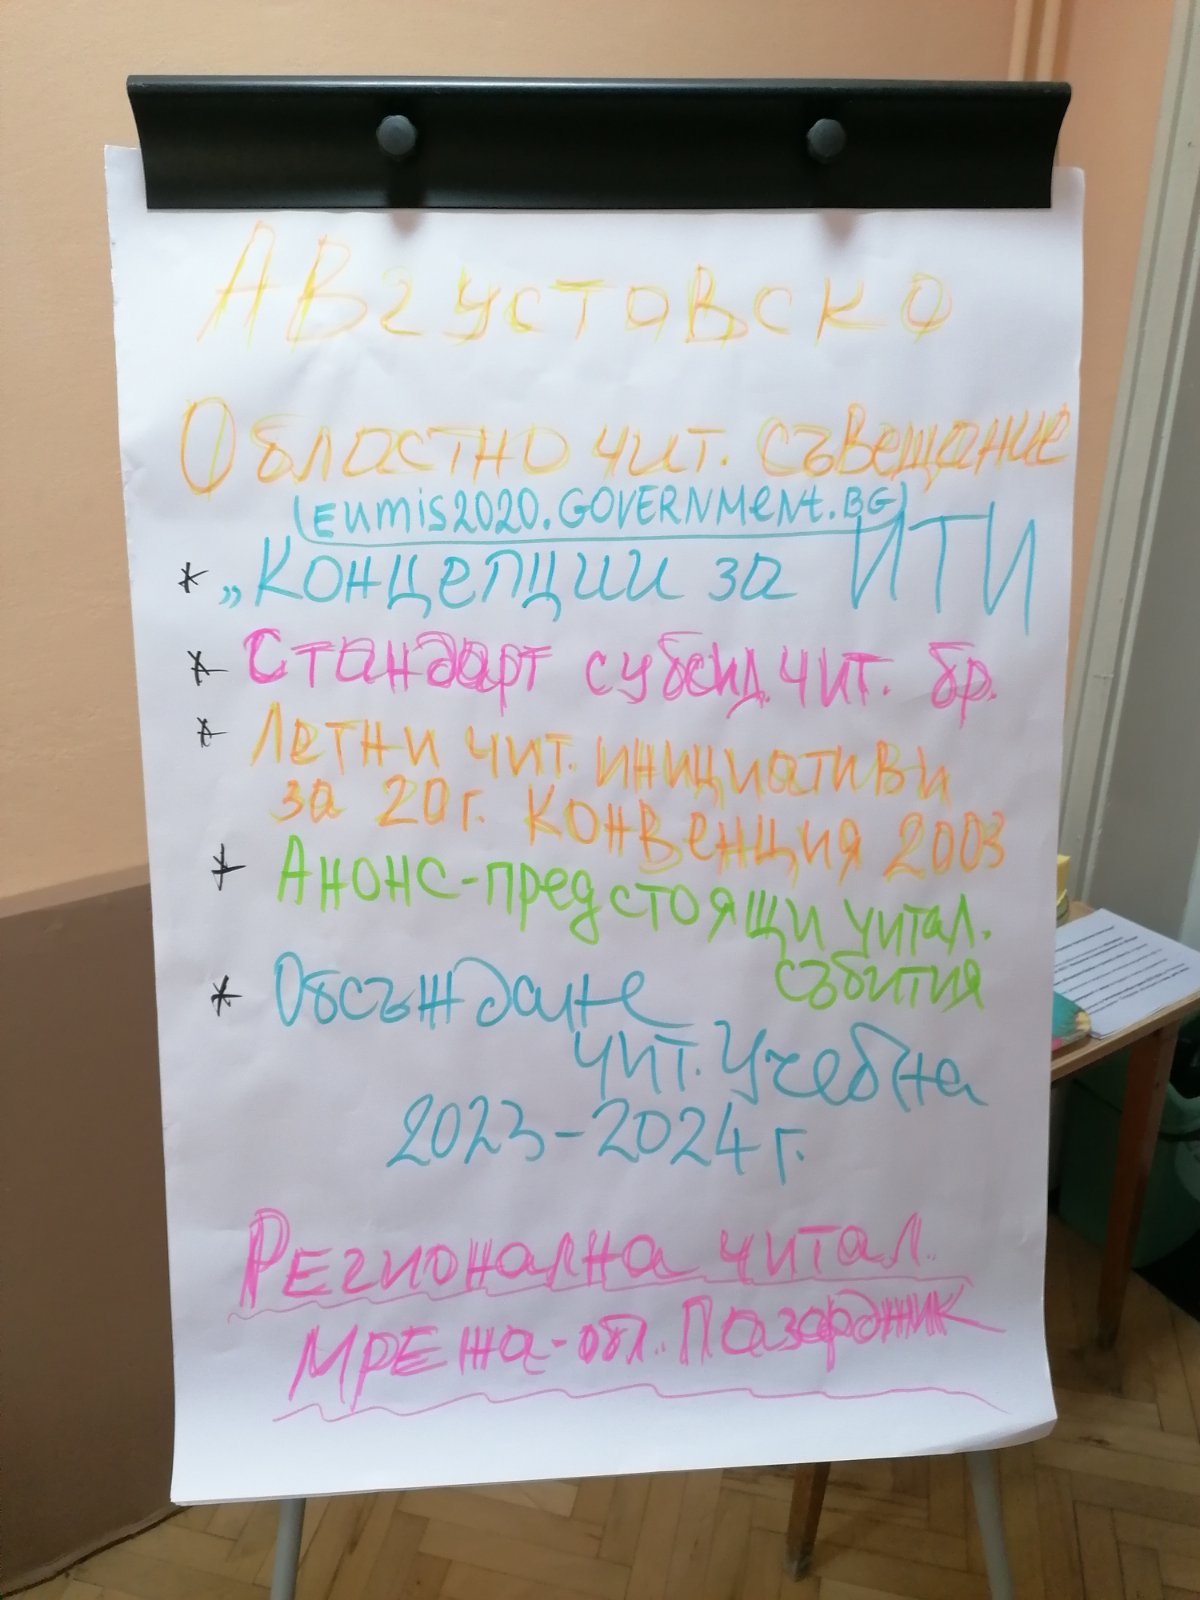 Августовско
Областно чит. съвещание
(eumis2020.GOVERNMENt.BG)
* „Концепции за ИТИ
* Стандарт субсид. чит. бр.
* Летни чит. инициативи
за 20г. Конвенция 2003
* Анонс-предстоящи читал.
събития
* Обсъждане
чит. Учебна
2023-2024 г.
Регионална читал.
мрежа-обл. Пазарджик